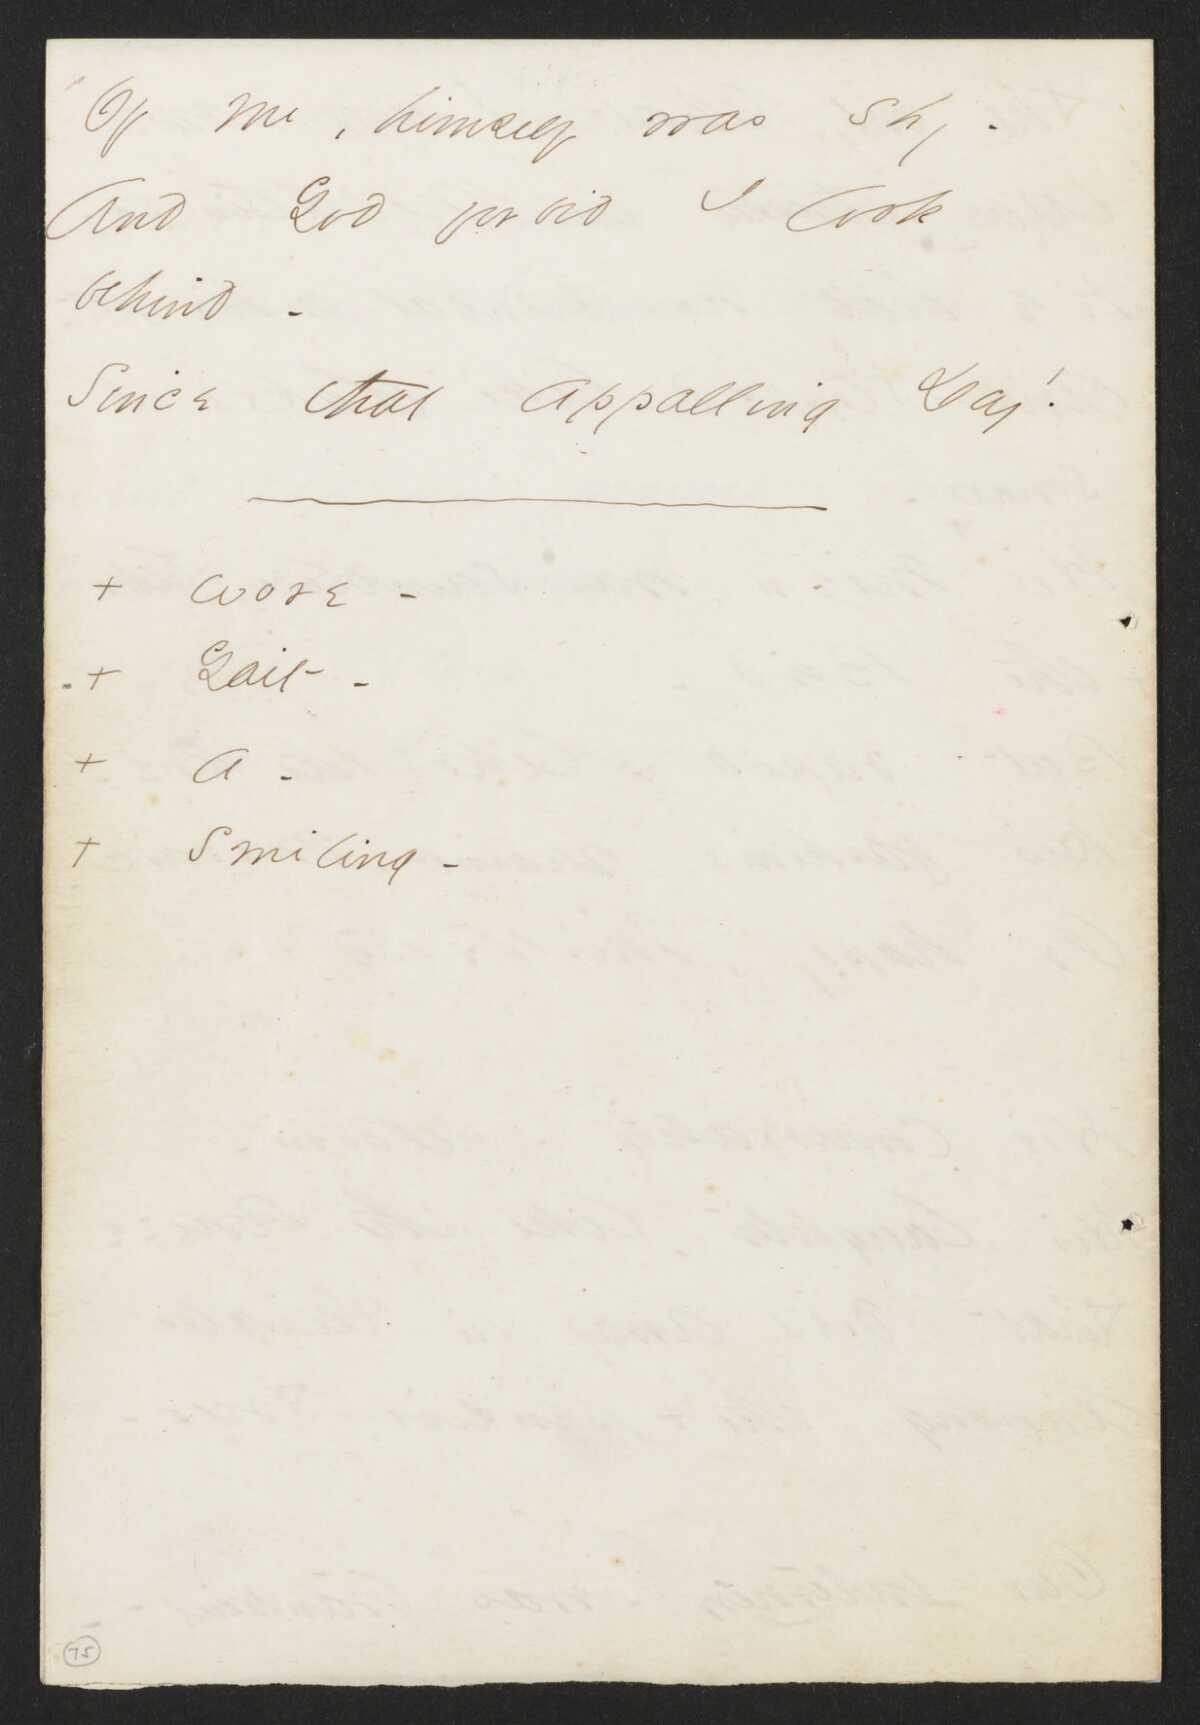 Of Me, himself was shy -
And God forbid I look
behind -
Since that appalling Day!
+ wore -
+ Gait -
+ a -
+ smiling -
75